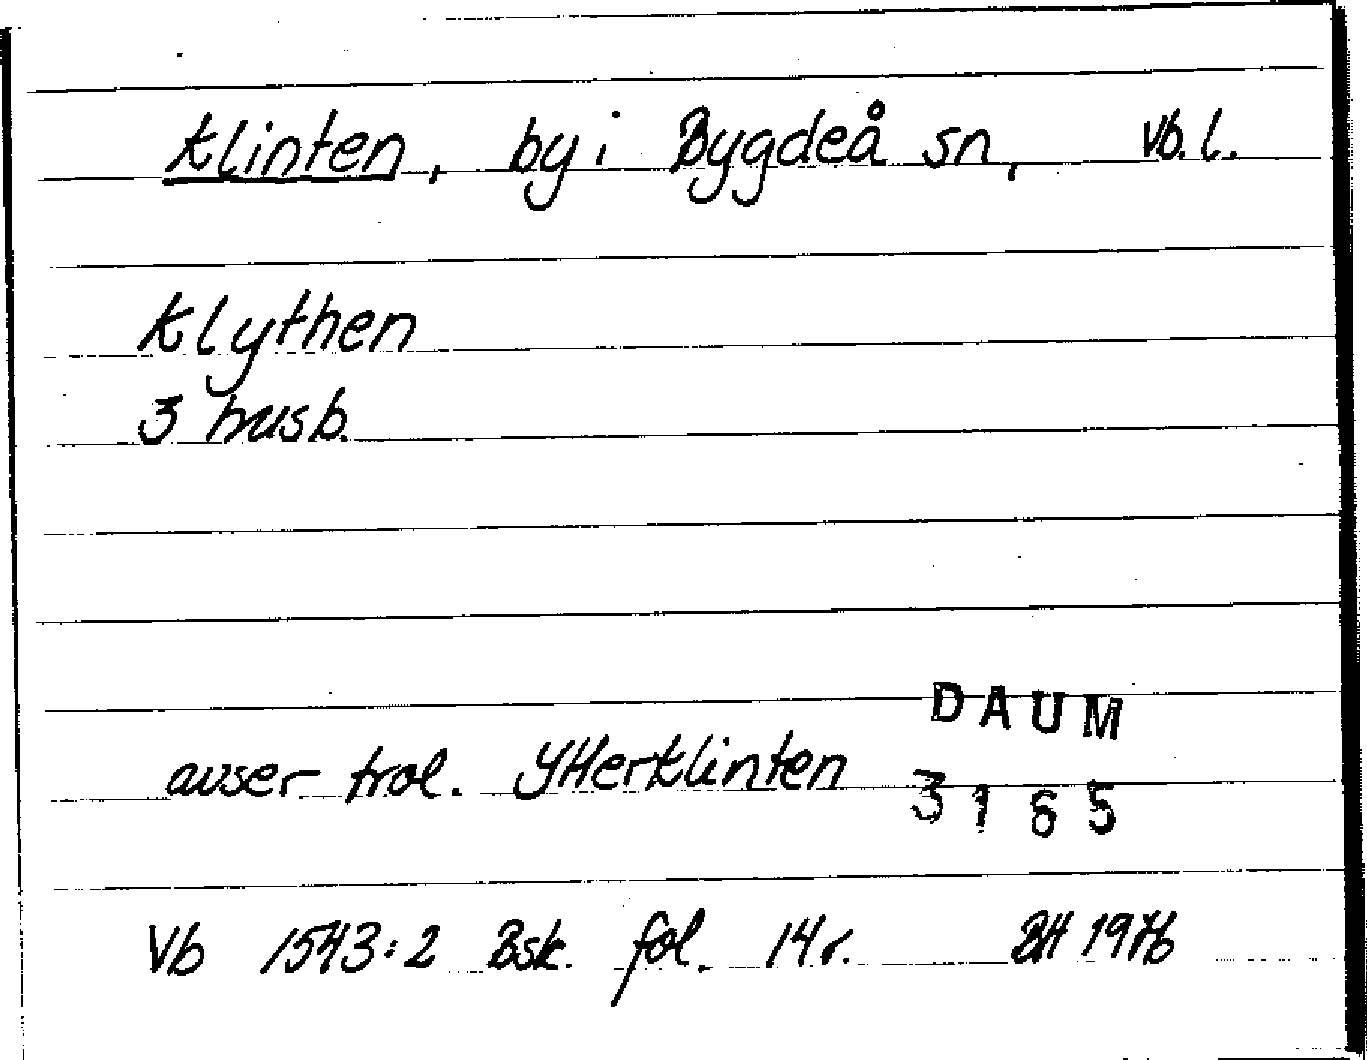 Klinten, by i Bygdeå sn, Vb. l.
Klythen
3 husb.
DAUM
avser trol. Ytterklinten 3165
Vb 1543:2 Bsk. fol. 14 r. BH 1976